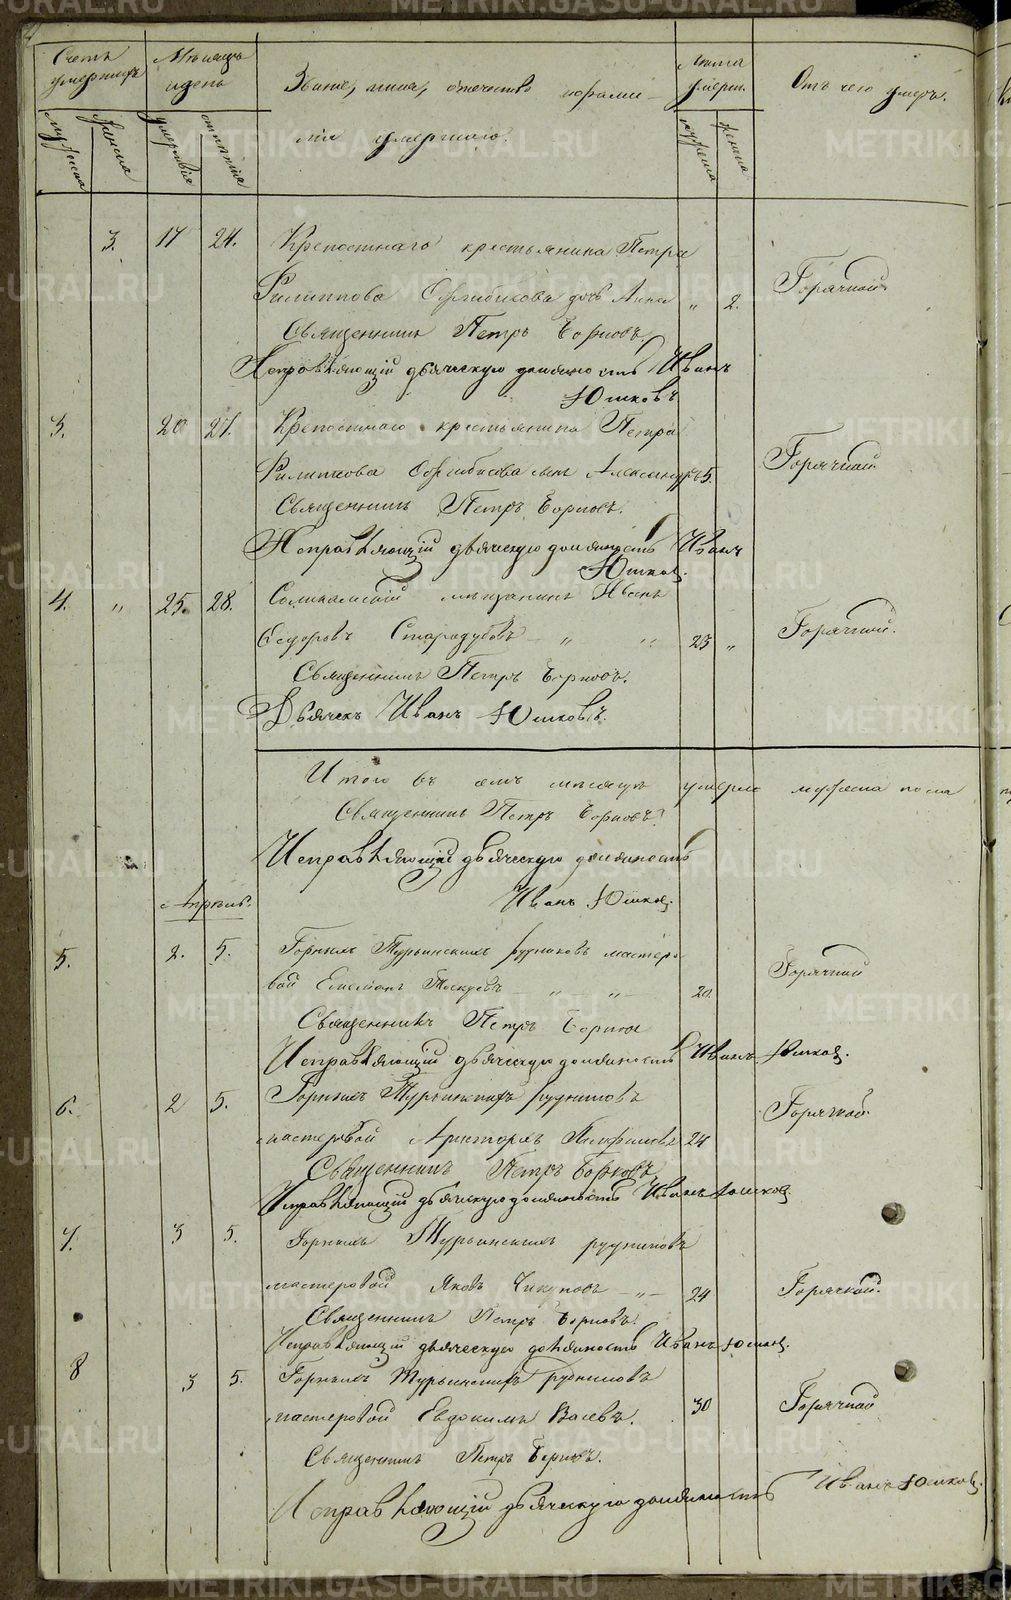 Счетъ умершихъ
Мѣсяцъ и день
Званіе, имя, отчество и фами-
лія умершаго.
Лѣта умерш.
Отъ чего умеръ.
мужеска
женска
умертвія
погребенія
мужеска
женска
3. 17 24. Крепостнаго крестьянина Петра
Филиппова дочь Анна „ 2. Горячкой
Священникъ Петръ
Исправляющій дьяческую должность Иванъ
Юшковъ
3. 20 27. Крепостнаго крестьянина Петра
Филиппова сынъ Александръ 5. Горячкой
Священникъ Петръ
Исправляющій дьяческую должность Иванъ
Юшков.
4. „ 25. 28. Соликамскій мѣщанинъ Иванъ
Федоровъ Стародубовъ „ „ 23 „ Горячкой.
Священникъ Петръ
Дьячекъ Иванъ Юшковъ.
Итого въ мѣсяцѣ умерло мужеска пола
Священникъ Петръ
Исправляющій дьяческую должность
Иванъ Юшков.
Апрѣль.
5. 2. 5. Горныхъ Турьинскихъ рудниковъ мастеро-
вой „ „ 20. Горячкой
Священникъ Петръ
Исправляющій дьяческую должность Иванъ Юшков.
6. 2 5. Горныхъ Турьинскихъ рудниковъ
мастеровой 24 Горячкой
Священникъ Петръ
Исправляющій дьяческую должность Иванъ Юшков.
7. 3 5. Горныхъ Турьинскихъ рудниковъ
мастеровой Яковъ „ 24 Горячкой.
Священникъ Петръ
Исправляющій дьяческую должность Иванъ Юшков.
8 3 5. Горныхъ Турьинскихъ рудниковъ
мастеровой Евдокимъ 30 Горячкой
Священникъ Петръ
Исправляющій дьяческую должность Иванъ Юшков.
METRIKI.GASO-URAL.RU